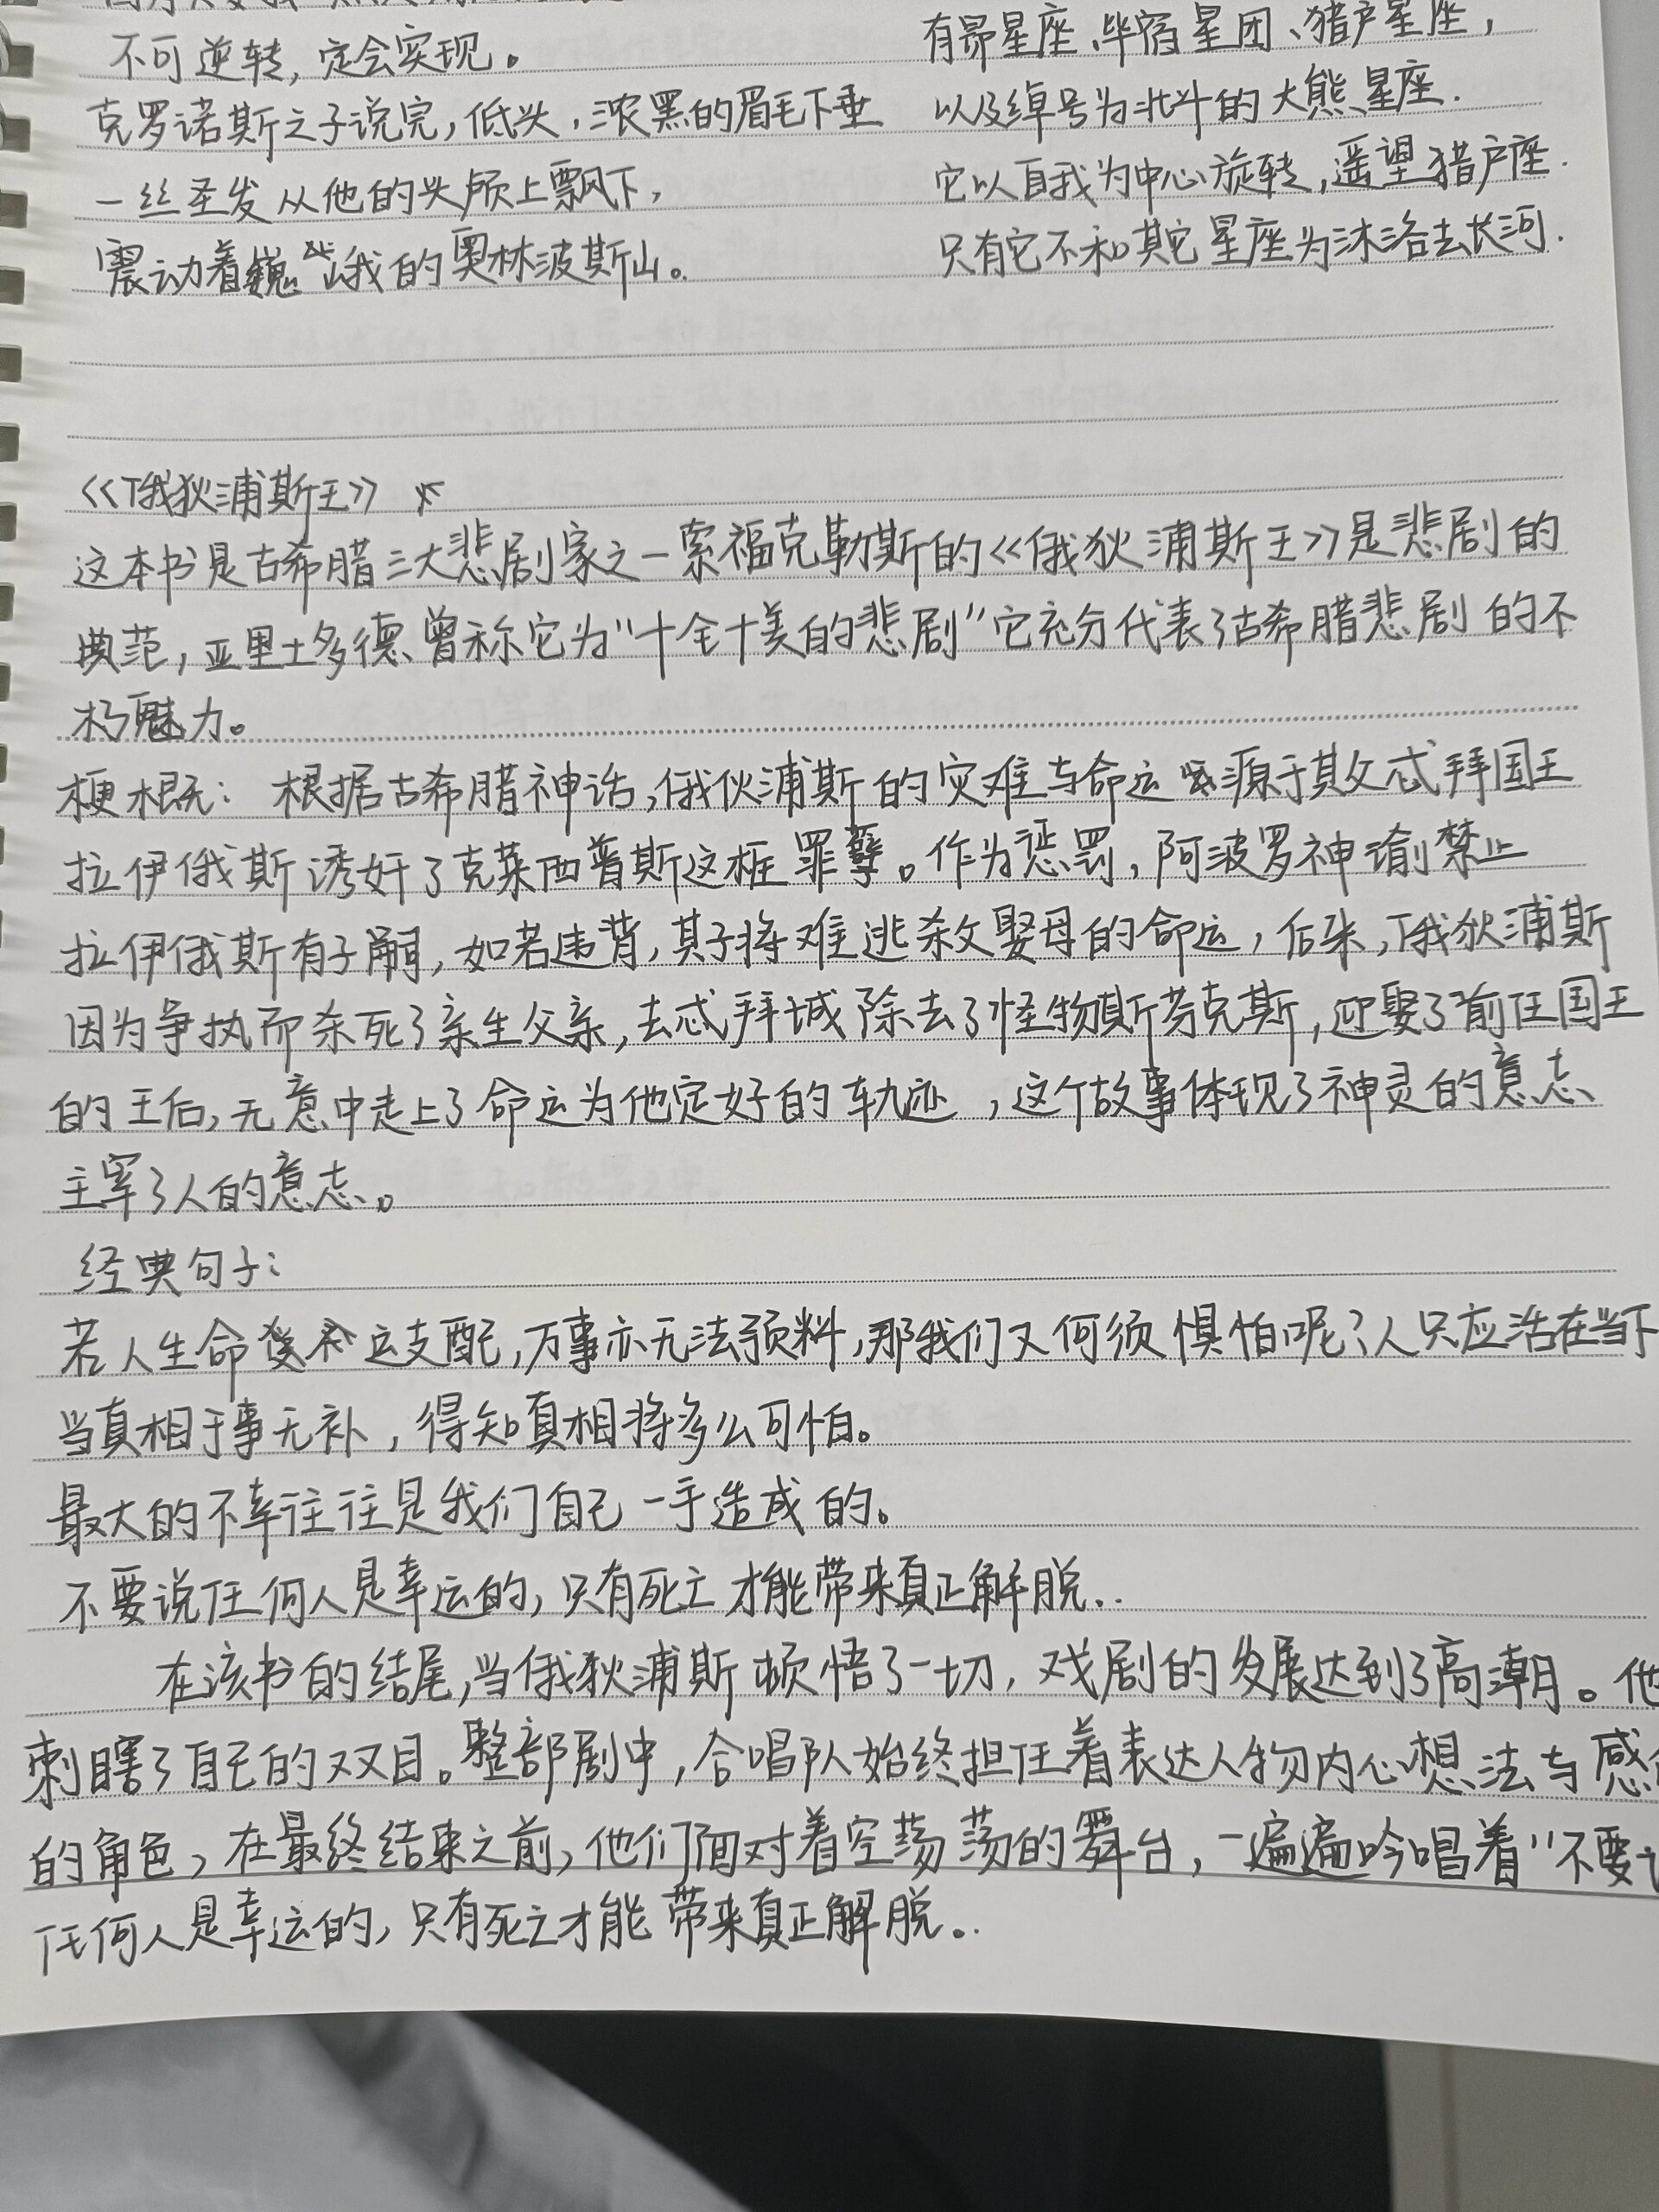 不可逆转,定会实现。
克罗诺斯之子说完,低头,浓黑的眉毛下垂
一丝圣发从他的头颅上飘下,
震动着巍峨的奥林波斯山。
有昴星座、毕宿星团、猎户星座,
以及绰号为北斗的大熊星座.
它以自我为中心旋转,遥望猎户座.
只有它不和其它星座为沐浴去长河.
《俄狄浦斯王》
这本书是古希腊三大悲剧家之一索福克勒斯的《俄狄浦斯王》是悲剧的
典范,亚里士多德曾称它为"十全十美的悲剧"它充分代表了古希腊悲剧的不
朽魅力。
梗概:根据古希腊神话,俄狄浦斯的灾难与命运源于其父忒拜国王
拉伊俄斯诱奸了克莱西普斯这桩罪孽。作为惩罚,阿波罗神谕禁止
拉伊俄斯有子嗣,如若违背,其子将难逃杀父娶母的命运,后来,俄狄浦斯
因为争执而杀死了亲生父亲,去忒拜城除去了怪物斯芬克斯,迎娶了前任国王
的王后,无意中走上了命运为他定好的轨迹,这个故事体现了神灵的意志
主宰了人的意志。
经典句子:
若人生命运支配,万事亦无法预料,那我们又何须惧怕呢?人只应活在当下
当真相于事无补,得知真相将多么可怕。
最大的不幸往往是我们自己一手造成的。
不要说任何人是幸运的,只有死亡才能带来真正解脱..
在该书的结尾,当俄狄浦斯顿悟了一切,戏剧的发展达到了高潮。他
刺瞎了自己的双目。整部剧中,合唱队始终担任着表达人物内心想法与感
的角色,在最终结束之前,他们面对着空荡荡的舞台,一遍遍吟唱着"不要
任何人是幸运的,只有死亡才能带来真正解脱。.